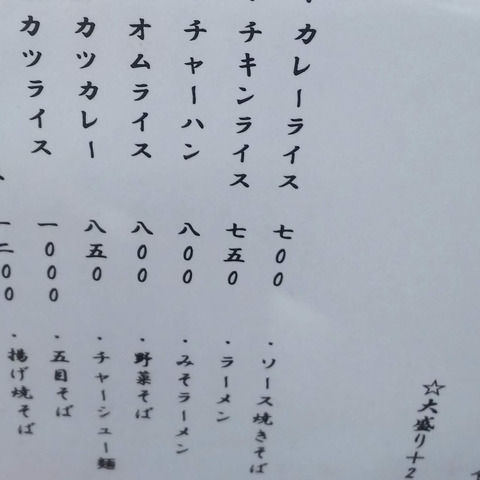 ・カレーライス 七00
・チキンライス 七五0
チャーハン 八00
オムライス 八00
カツカレー 八五0
カツライス 一000
一二00
・ソース焼きそば
・ラーメン
・みそラーメン
・野菜そば
・チャーシュー麺
・五目そば
・揚げ焼そば
☆大盛り+2